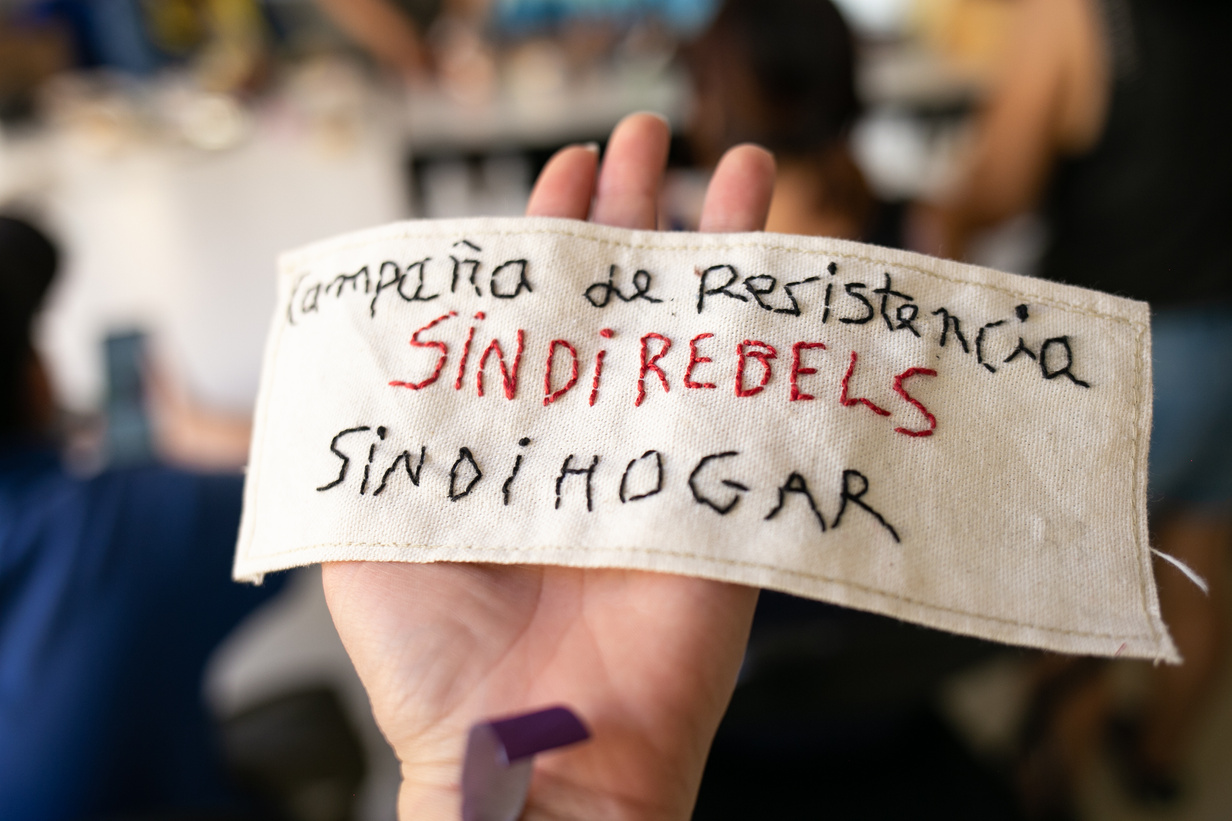 Campaña de Resistencia
SINDIREBELS
SINDIHOGAR